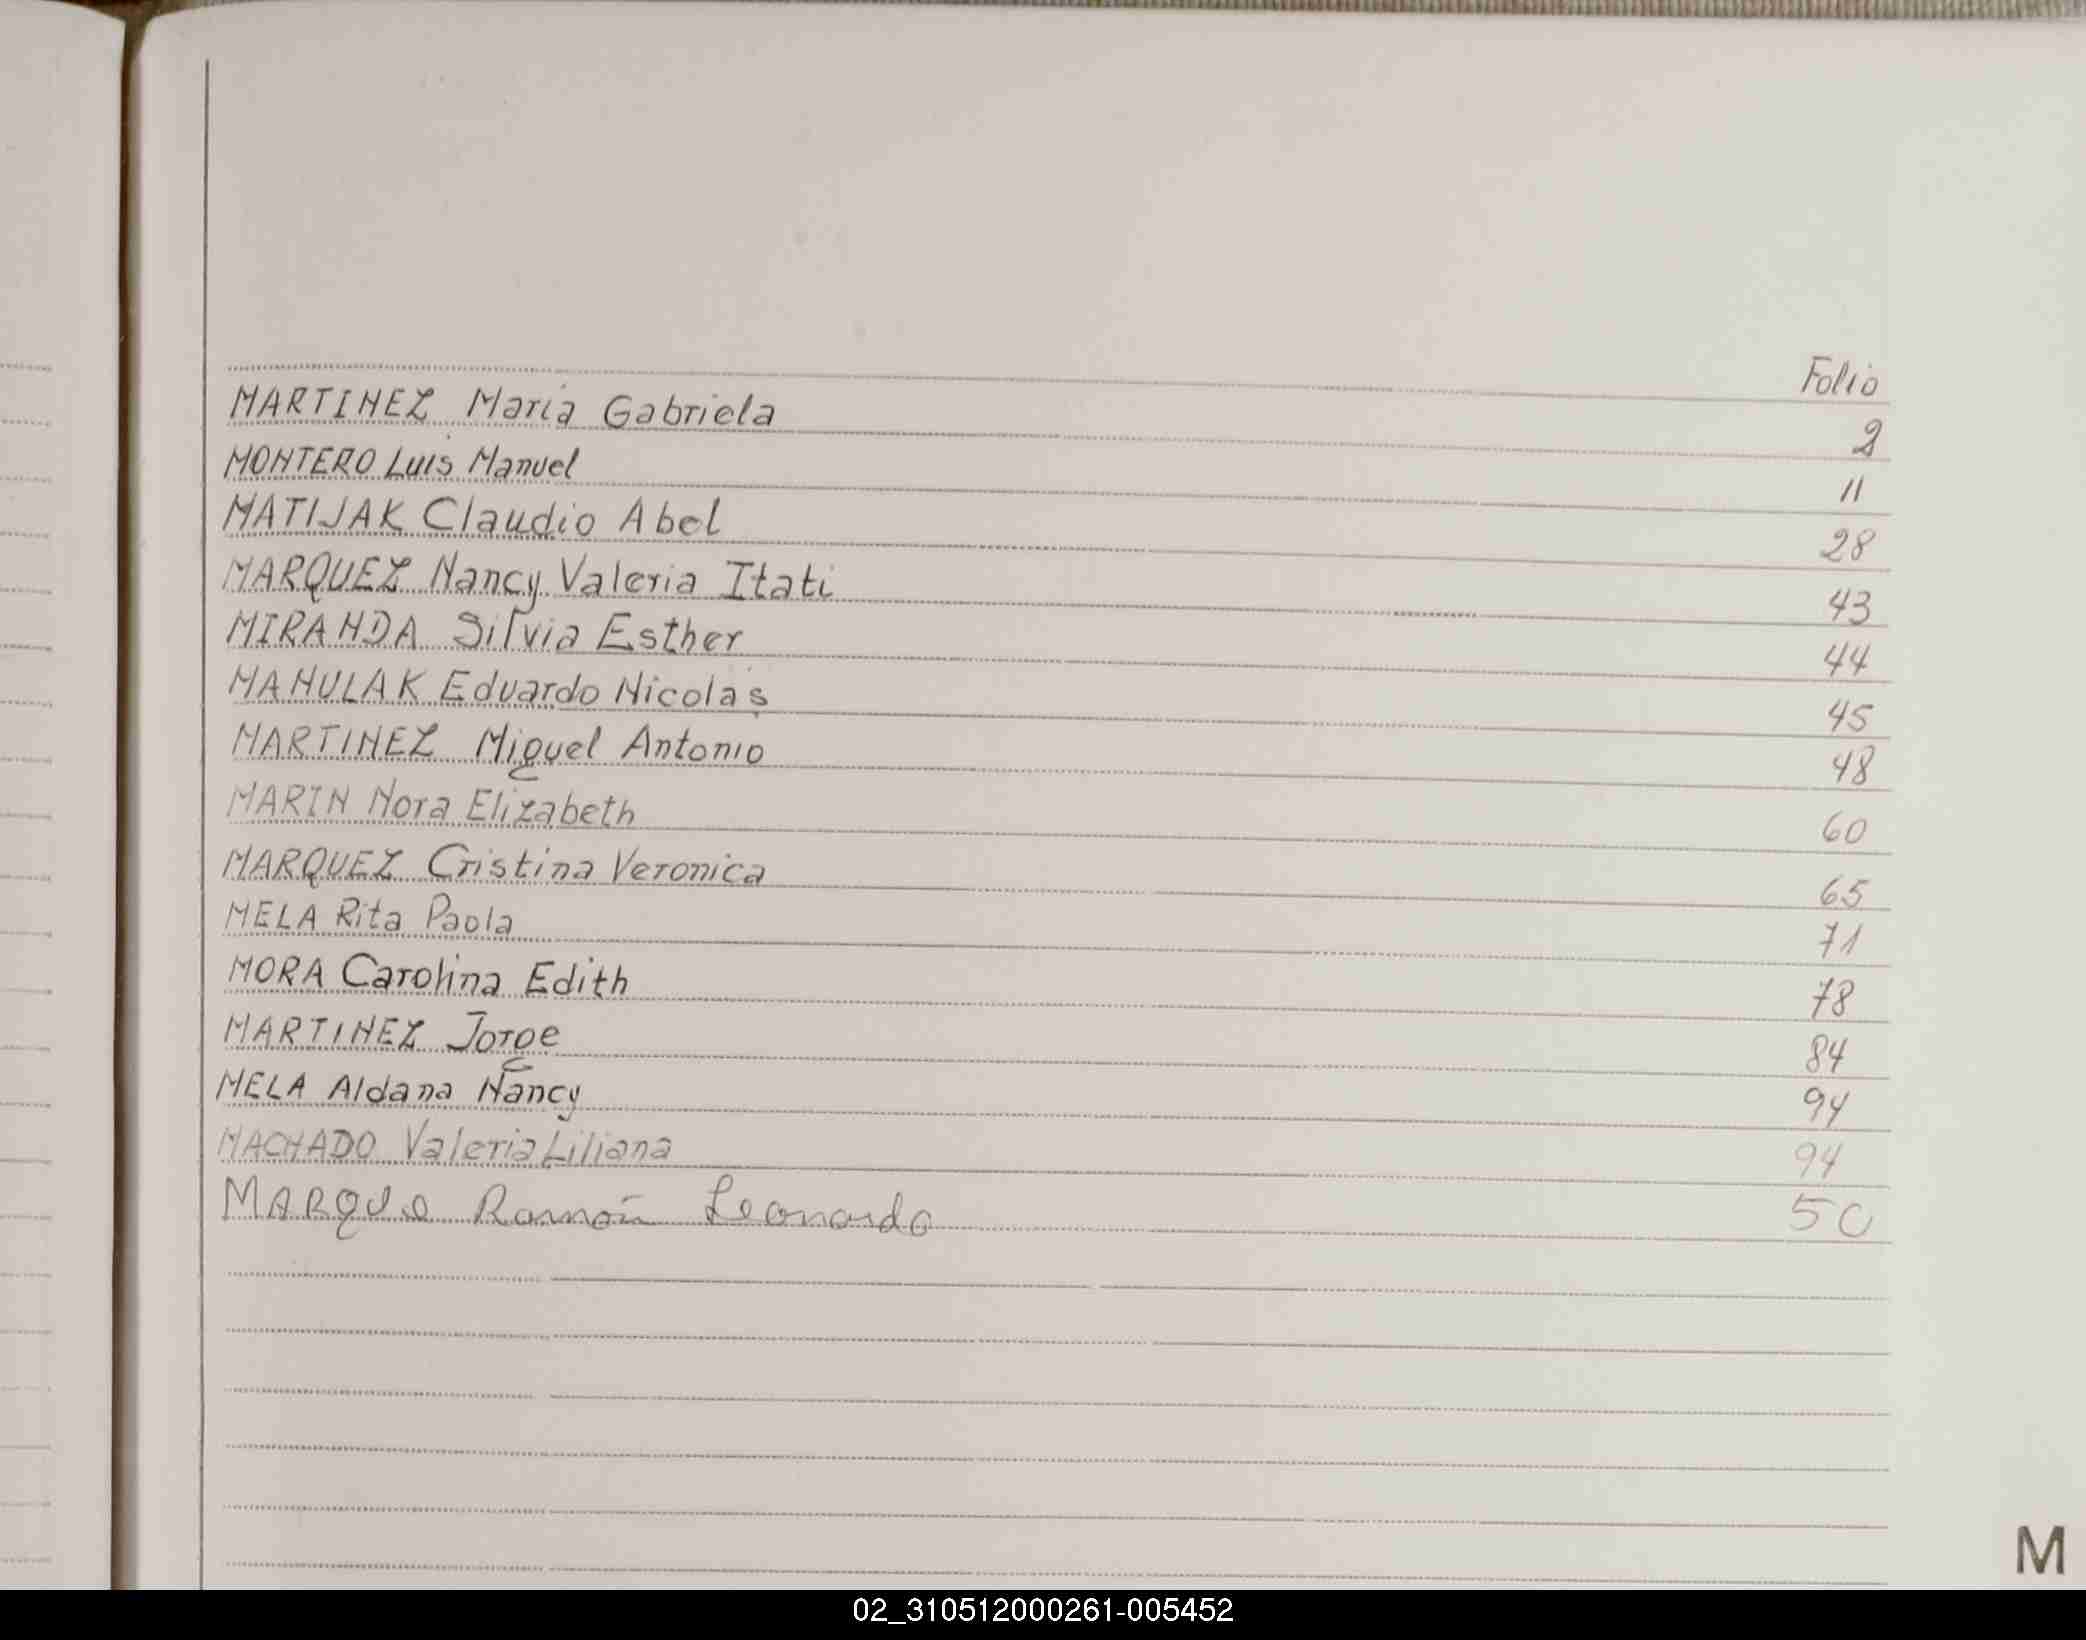 Folio
MARTINEZ María Gabriela 2
MONTERO Luis Manuel 11
MATIJAK Claudio Abel 28
MARQUEZ Nancy Valeria Itati 43
MIRANDA Silvia Esther 44
MANULAK Eduardo Nicolas 45
MARTINEZ Miguel Antonio 48
MARIN Nora Elizabeth 60
MARQUEZ Cristina Veronica 65
MELA Rita Paola 71
MORA Carolina Edith 78
MARTINEZ Jorge 84
MELA Aldana Nancy 94
MACHADO Valeria Liliana 94
Ramón Leonardo 50
M
02_310512000261-005452